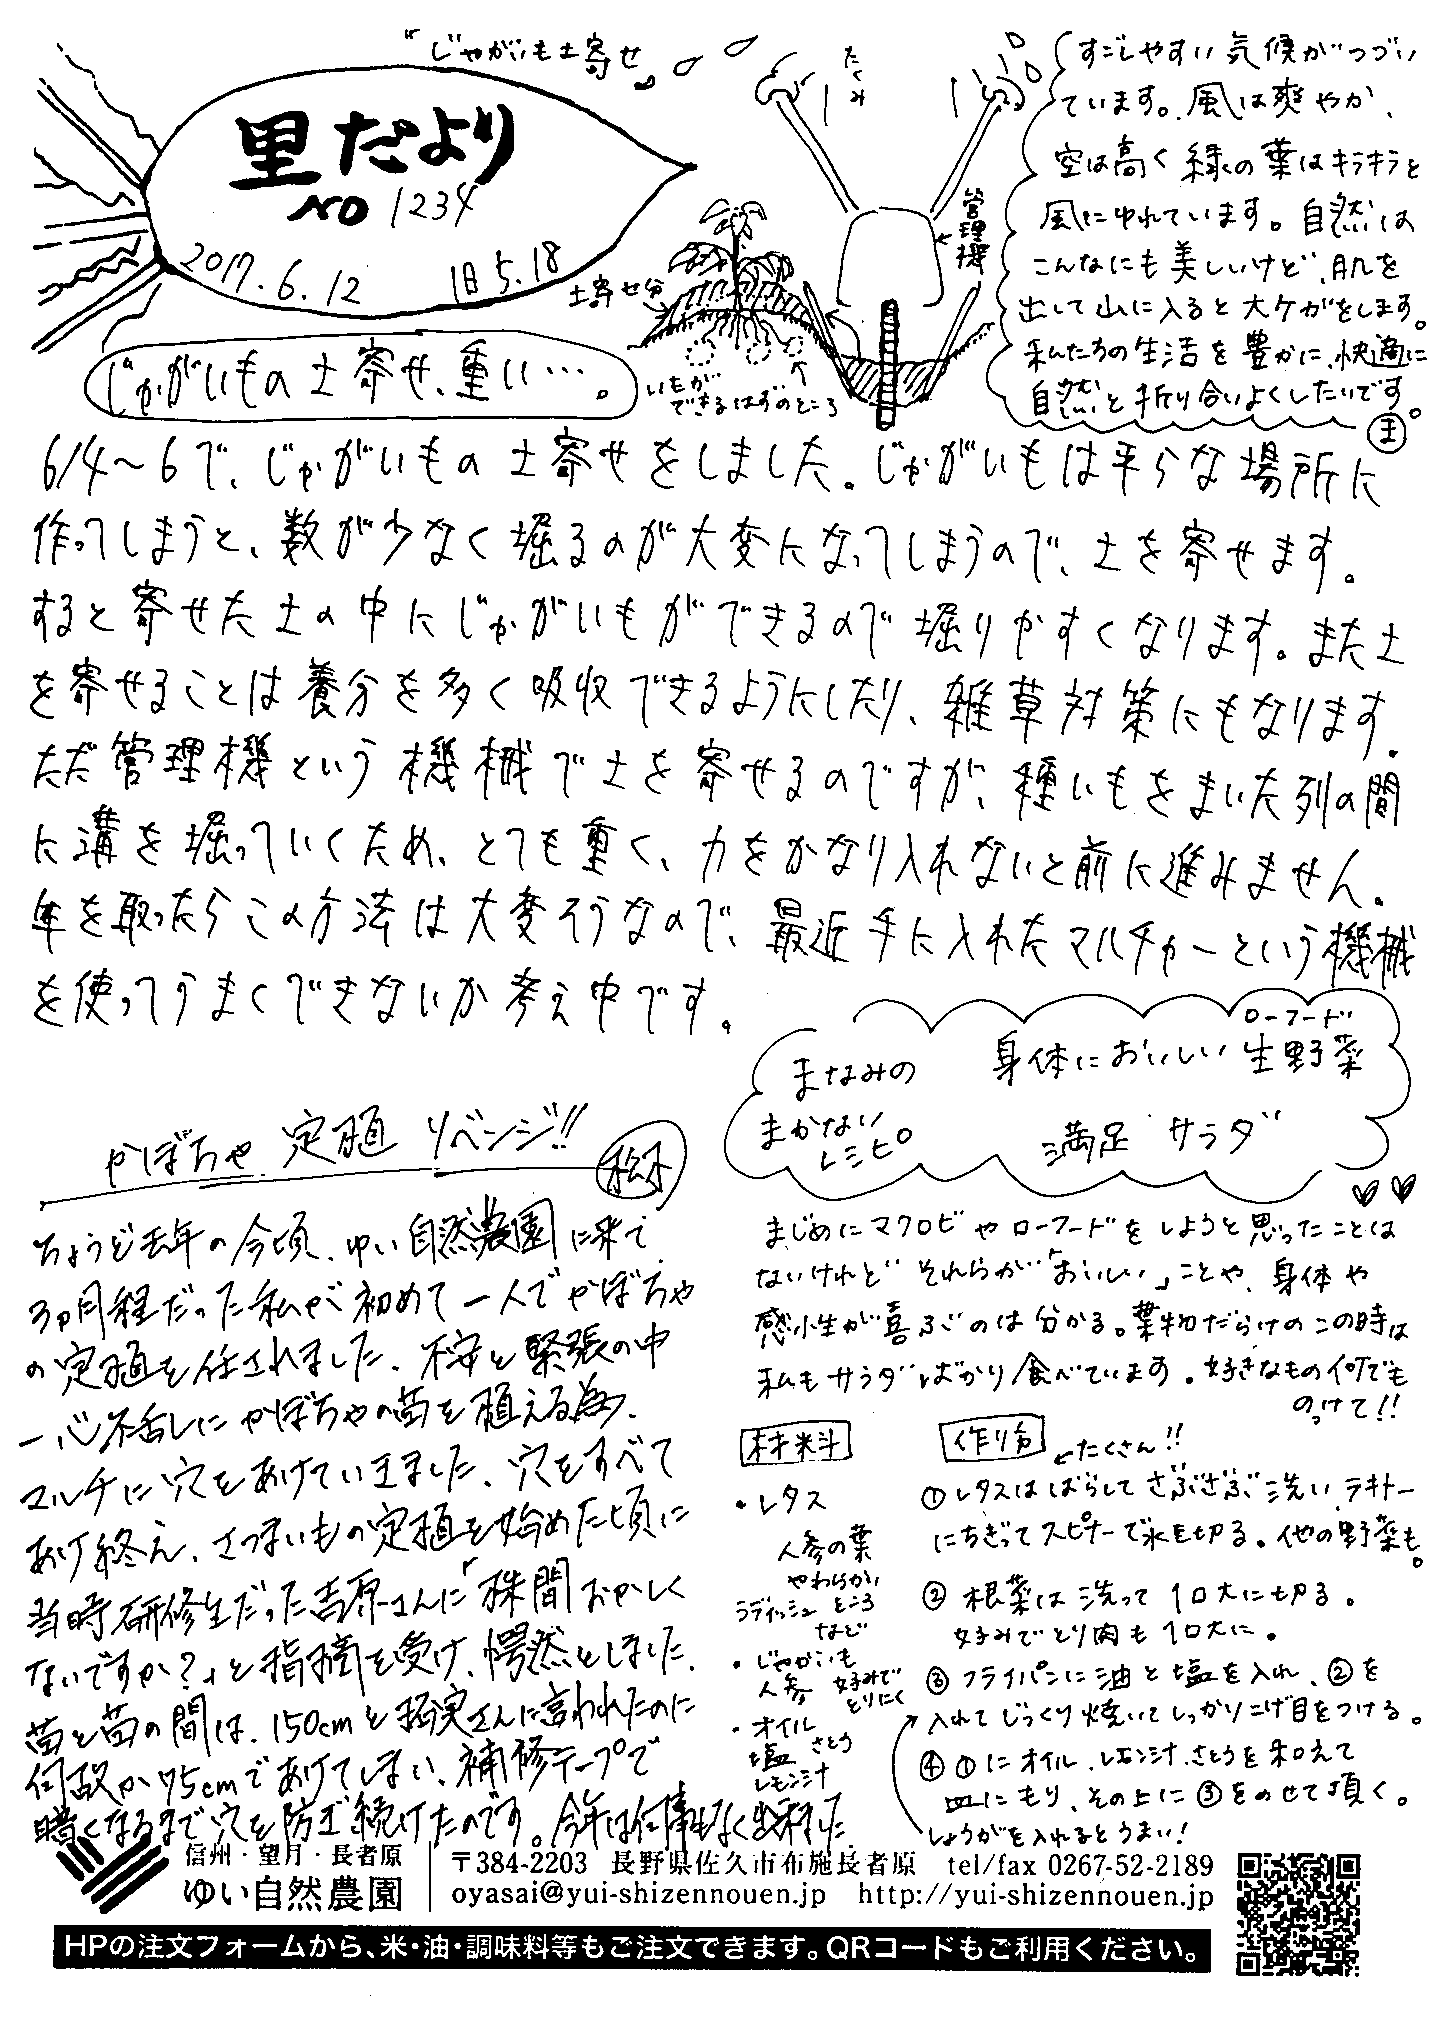 じゃがいも土寄せ
里だより
NO 1234
2017.6.12 旧5.18
たくみ
管理機
土寄せ分
いもが
できるはずのところ
すごしやすい気候がつづい
ています。風は爽やか、
空は高く緑の葉はキラキラと
風にゆれています。自然は
こんなにも美しいけど、肌を
出して山に入ると大ケガをします。
私たちの生活を豊かに、快適に
自然と折り合いよくしたいです。
ま
じゃがいもの土寄せ、重い…。
6/4〜6で、じゃがいもの土寄せをしました。じゃがいもは平らな場所に
作ってしまうと、数が少なく堀るのが大変になってしまうので、土を寄せます。
すると寄せた土の中にじゃがいもができるので堀りやすくなります。また土
を寄せることは養分を多く吸収できるようにしたり、雑草対策にもなります。
ただ管理機という機械で土を寄せるのですが、種いもをまいた列の間
に溝を堀っていくため、とても重く、力をかなり入れないと前に進みません。
年を取ったらこの方法は大変そうなので、最近手に入れたマルチャーという機械
を使ってうまくできないか考え中です。
かぼちゃ定植リベンジ!!
ちょうど去年の今頃、ゆい自然農園に来て
3ヵ月程だった私が初めて一人でかぼちゃ
の定植を任されました。不安と緊張の中
一心不乱にかぼちゃの苗を植える為、
マルチに穴をあけていきました。穴をすべて
あけ終え、さつまいもの定植を始めた頃に
当時研修生だった吉原さんに「株間おかしく
ないですか?」と指摘を受け、愕然としました。
苗と苗の間は、150cmと拓実さんに言われたのに
何故か75cmであけてしまい、補修テープで
暗くなるまで穴を防ぎ続けたのです。今年は何事もなく出来ました。
まなみの
まかない
レシピ
ローフード
身体においしい生野菜
満足サラダ
まじめにマクロビやローフードをしようと思ったことは
ないけれど それらが「おいしい」ことや、身体や
感性が喜ぶのは分かる。葉物だらけのこの時は
私もサラダばかり食べています。好きなもの何でも
のっけて!!
材料
・レタス
人参の葉
やわらかい
ところ
ラディッシュ
など
・じゃがいも
人参
好みで
とりにく
・オイル
塩 さとう
レモン汁
作り方
←たくさん!!
①レタスはばらしてざぶざぶ洗い、テキトー
にちぎってスピナーで水を切る。他の野菜も。
② 根菜は洗って1口大に切る。
好みでとり肉も1口大に。
③ フライパンに油と塩を入れ、②を
入れてじっくり焼いてしっかりこげ目をつける。
④ ①にオイル、レモン汁、さとうを和えて
皿にもり、その上に③をのせて頂く。
しょうがを入れるとうまい!
信州・望月・長者原
ゆい自然農園
〒384-2203 長野県佐久市布施長者原 tel/fax 0267-52-2189
oyasai@yui-shizennouen.jp http://yui-shizennouen.jp
HPの注文フォームから、米・油・調味料等もご注文できます。QRコードもご利用ください。